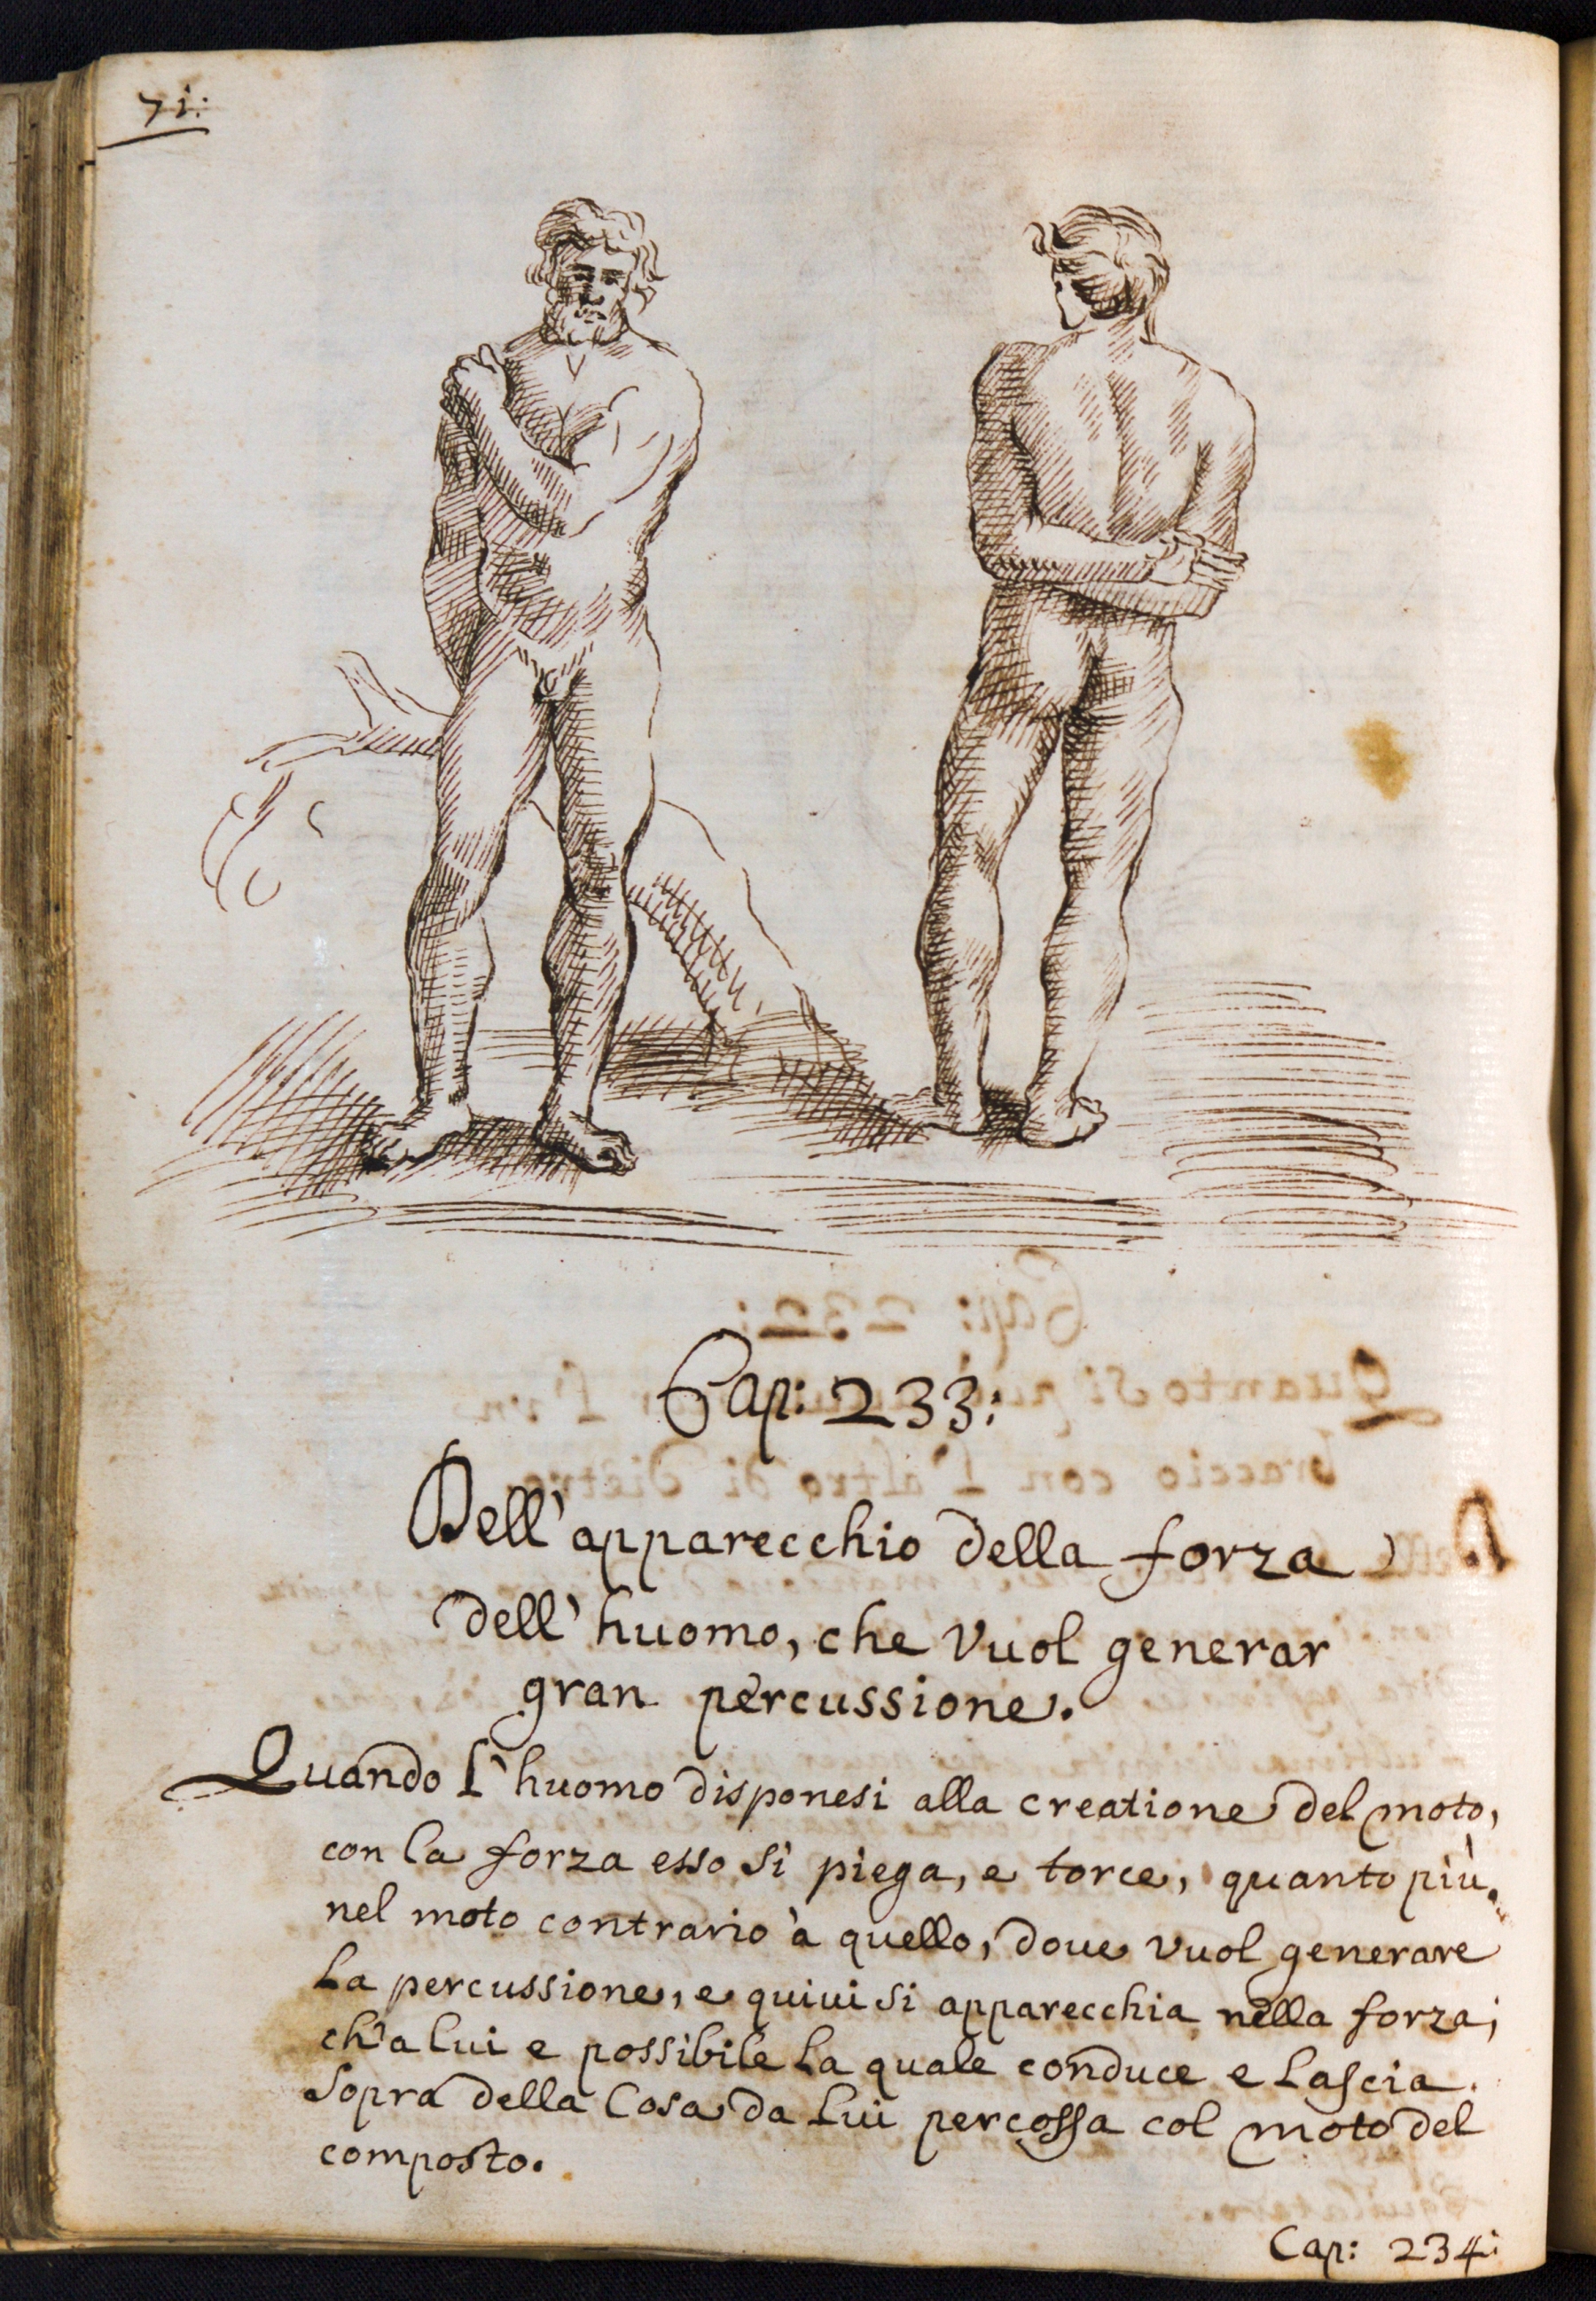 71:
Cap: 233:
Dell'apparecchio della forza
dell'huomo, che Vuol generar
gran percussione.
Quando l'huomo disponesi alla creatione del moto,
con la forza esso si piega, e torce, quanto più
nel moto contrario à quello, doue vuol generare
la percussione, e quiui si apparecchia nella forza;
ch'a lui e possibile la quale conduce e lascia
sopra della Cosa da lui percossa col moto del
composto.
Cap: 234: